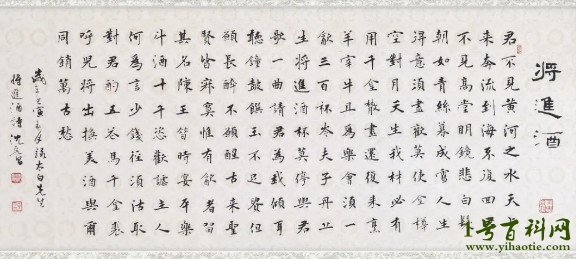 將進酒
君不見黃河之水天上
來奔流到海不復回君
不見高堂明鏡悲白髮
朝如青絲暮成雪人生
得意須盡歡莫使金樽
空對月天生我材必有
用千金散盡還復來烹
羊宰牛且為樂會須一
飲三百杯岑夫子丹丘
生將進酒杯莫停與君
歌一曲請君為我傾耳
聽鐘鼓饌玉不足貴但
願長醉不願醒古來聖
賢皆寂寞惟有飲者留
其名陳王昔時宴平樂
斗酒十千恣歡謔主人
何為言少錢徑須沽取
對君酌五花馬千金裘
呼兒將出換美酒與爾
同銷萬古愁
錄太白先生
將進酒詩
1号百科网
www.yihaotie.com